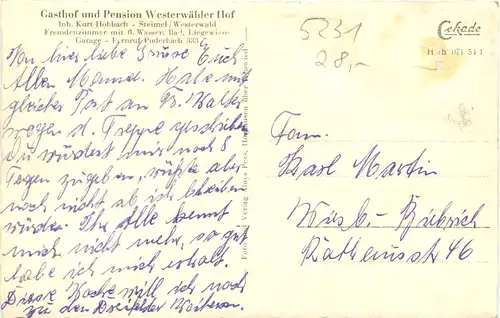 Gasthof und Pension Westerwälder Hof
Inh. Kurt Hohbach - Steimel/Westerwald
Fremdenzimmer mit fl. Wasser, Bad, Liegewiese
Garage - Fernruf: Puderbach 333
Von hier liebe Grüsse Euch
Allen Mama. Habe mit
gleicher Post an Fr. Walter
wegen d. Treppe geschrieben.
Du würdest mir noch 8
Tage zugeben, wüßte aber
noch nicht ob ich bleiben
würde. Ihr Alle kennt
mich nicht mehr, so gut
habe ich mich erholt.
Diese Woche will ich noch
zu den Dreifelder Weihern.
Foto und Verlag Hans Pees, über Neuwied
5231
28,-
Cekade
071 51 1
Fam.
Karl Martin
Wiesb.-Biebrich
Rathausstr 46